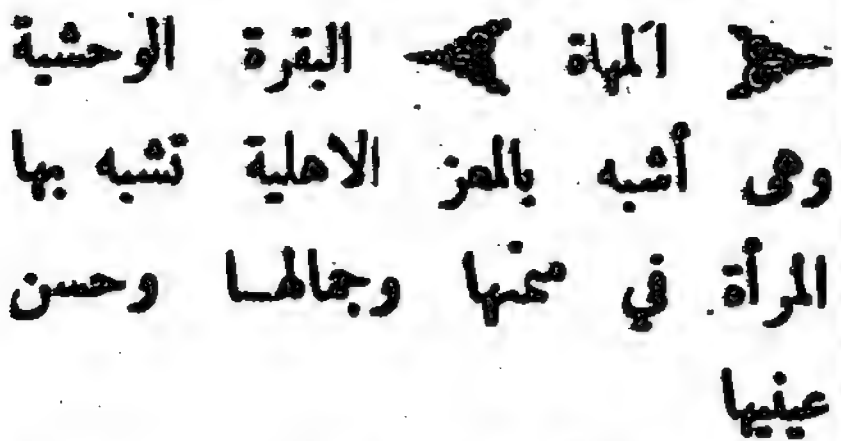 المهاة البقرة الوحشية
وهى أشبه بالمعز الاهلية تشبه بها
المرأة في سمنها وجمالها وحسن
عينيها